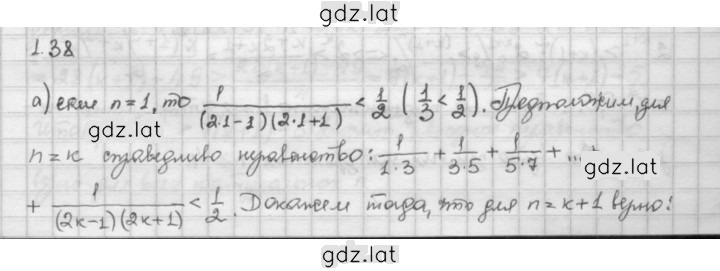 gdz.lat
1.38
а) если n=1, то 1/((2·1-1)(2·1+1)) < 1/2 (1/3 < 1/2). Предположим, для
gdz.lat
n=k справедливо неравенство: 1/(1·3) + 1/(3·5) + 1/(5·7) + ...+
gdz.lat
+ 1/((2k-1)(2k+1)) < 1/2. Докажем тогда, что для n=k+1 верно:
gdz.lat